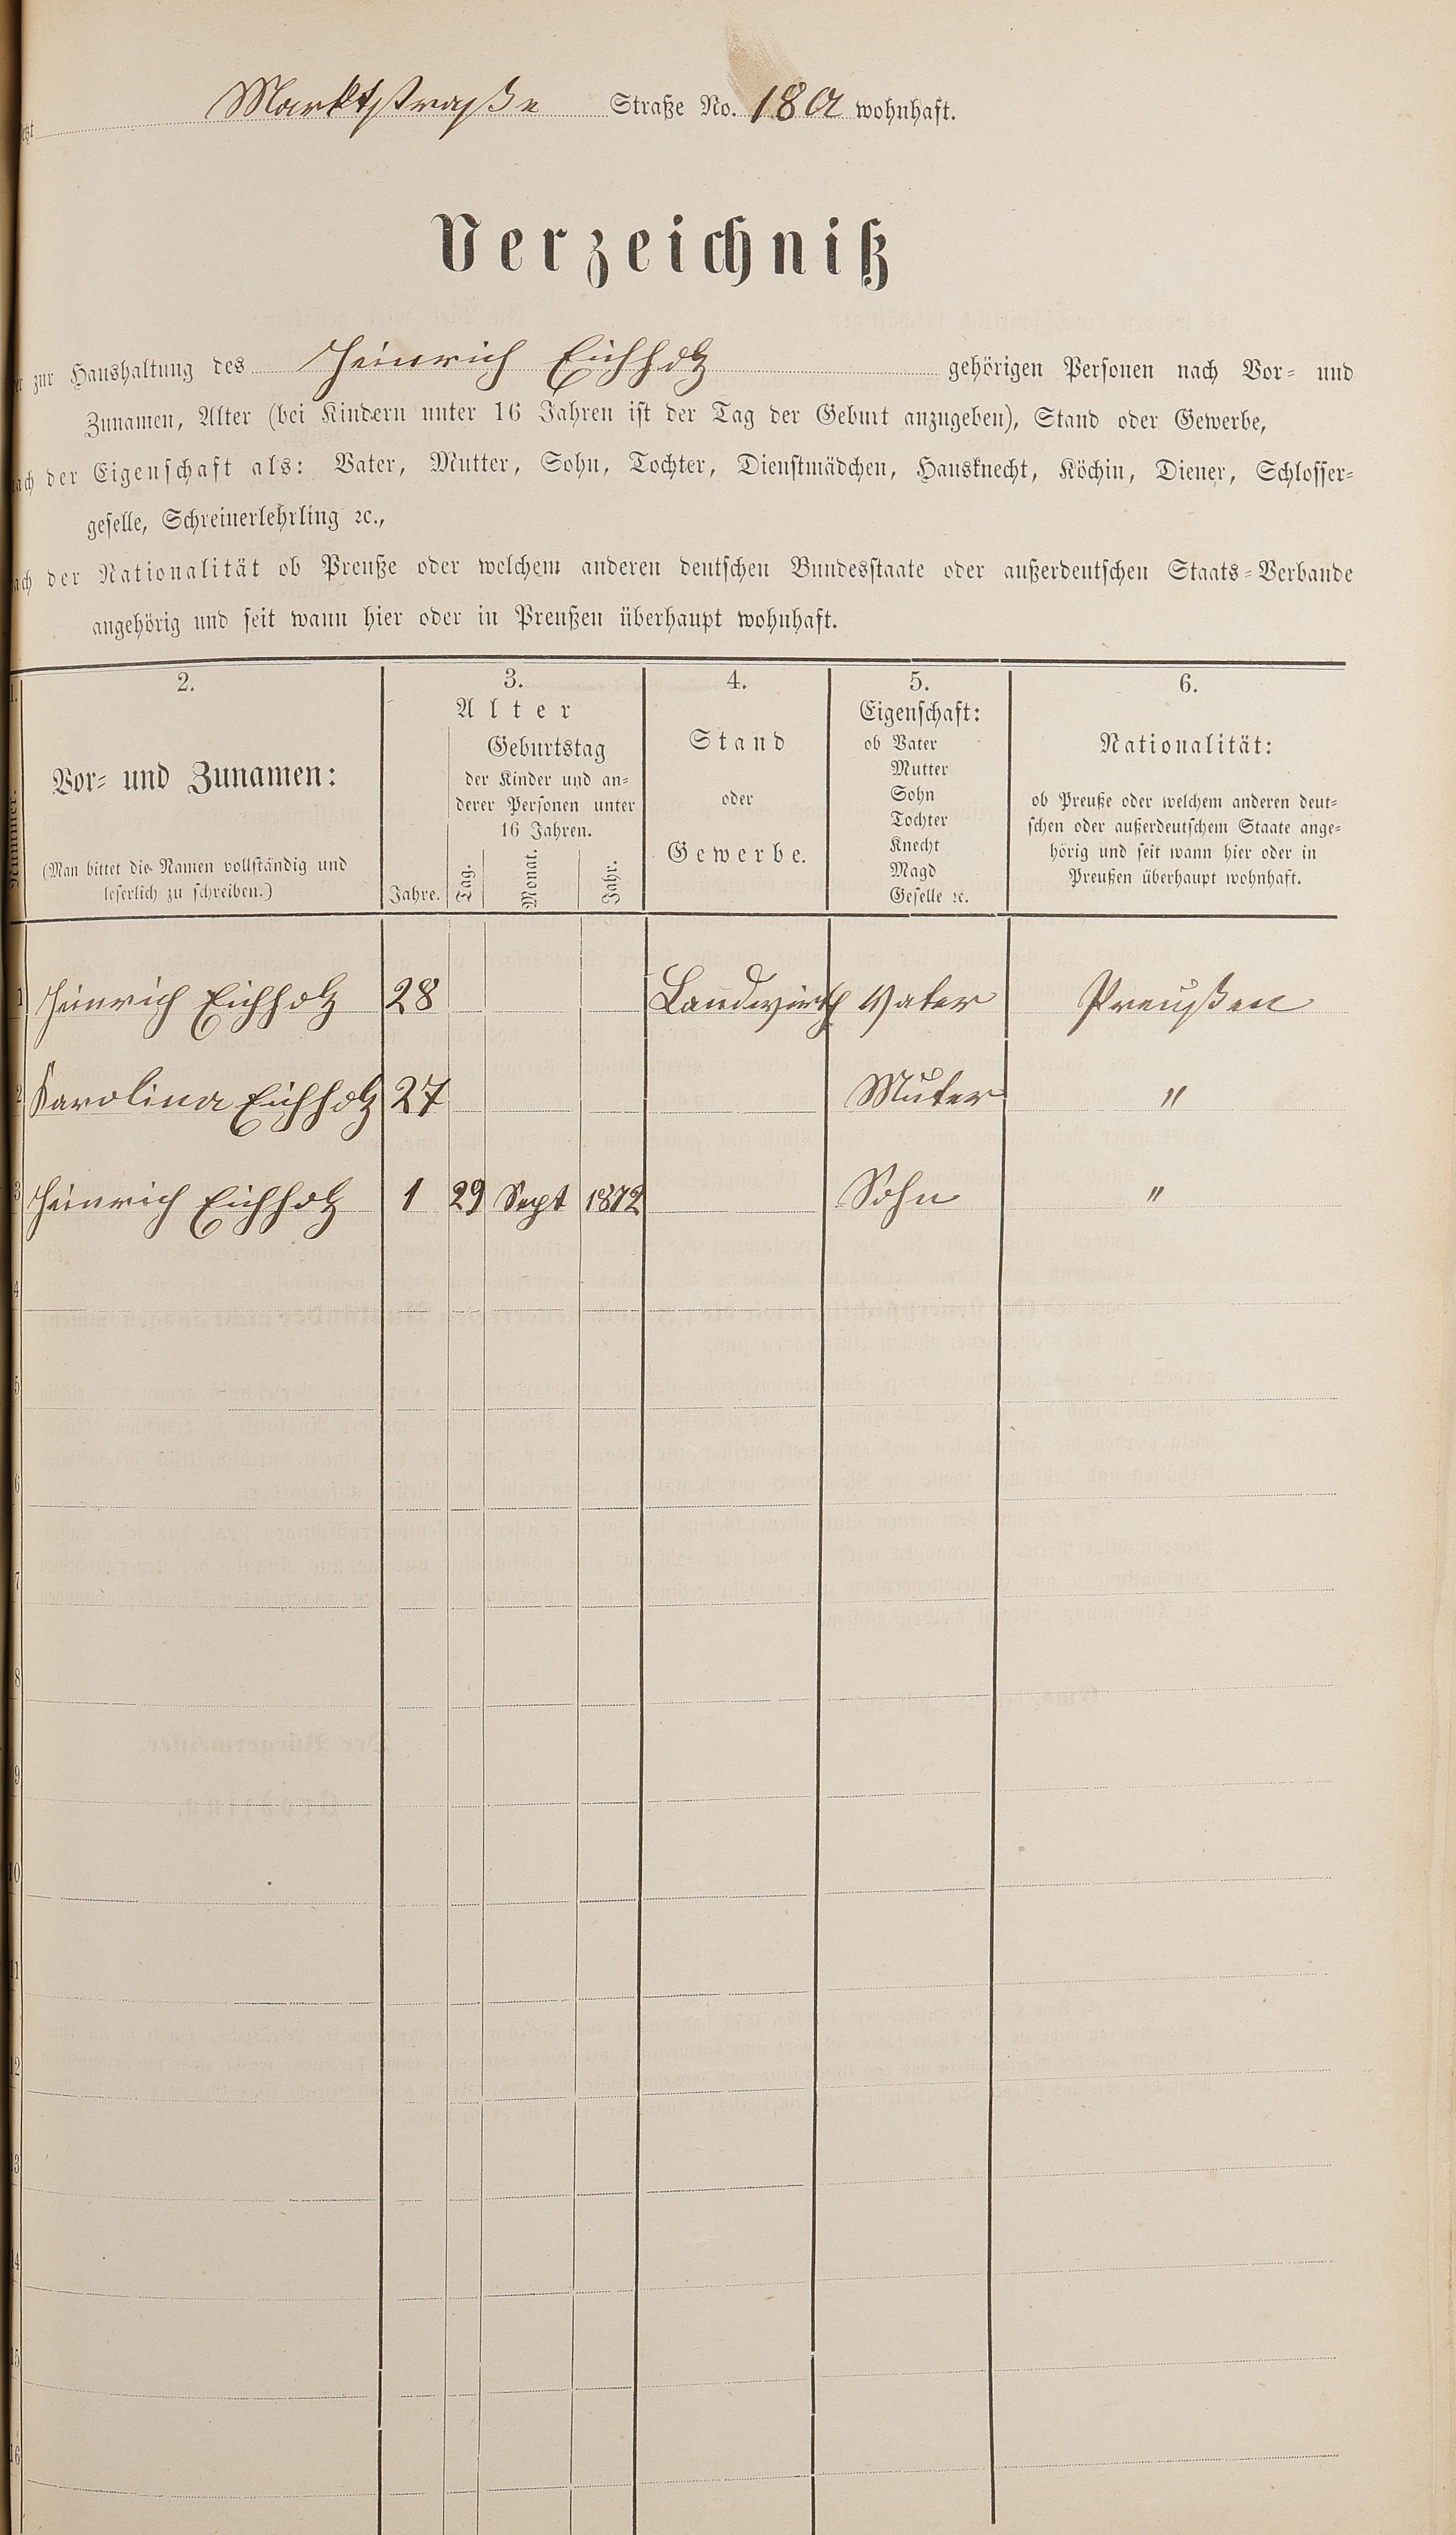 Marktstraße Straße No. 18 a wohnhaft.
Verzeichniß
zur Haushaltung des Heinrich Eichholz gehörigen Personen nach Vor- und
Zunamen, Alter (bei Kindern unter 16 Jahren ist der Tag der Geburt anzugeben), Stand oder Gewerbe,
nach der Eigenschaft als: Vater, Mutter, Sohn, Tochter, Dienstmädchen, Hausknecht, Köchin, Diener, Schlosser-
geselle, Schreinerlehrling ꝛc.,
nach der Nationalität ob Preuße oder welchem anderen deutschen Bundesstaate oder außerdeutschen Staats-Verbande
angehörig und seit wann hier oder in Preußen überhaupt wohnhaft.
1. 2. 3. 4. 5. 6.
Nummer.
Vor- und Zunamen:
(Man bittet die Namen vollständig und
leserlich zu schreiben.)
Alter
Jahre.
Geburtstag
der Kinder und an-
derer Personen unter
16 Jahren.
Tag. Monat. Jahr.
Stand
oder
Gewerbe.
Eigenschaft:
ob Vater
Mutter
Sohn
Tochter
Knecht
Magd
Geselle ꝛc.
Nationalität:
ob Preuße oder welchem anderen deut-
schen oder außerdeutschem Staate ange-
hörig und seit wann hier oder in
Preußen überhaupt wohnhaft.
1 Heinrich Eichholz 28 Landwirth Vater Preußen
2 Karolina Eichholz 27 Muter "
3 Heinrich Eichholz 1 29 Sept 1872 Sohn "
4
5
6
7
8
9
10
11
12
13
14
15
16